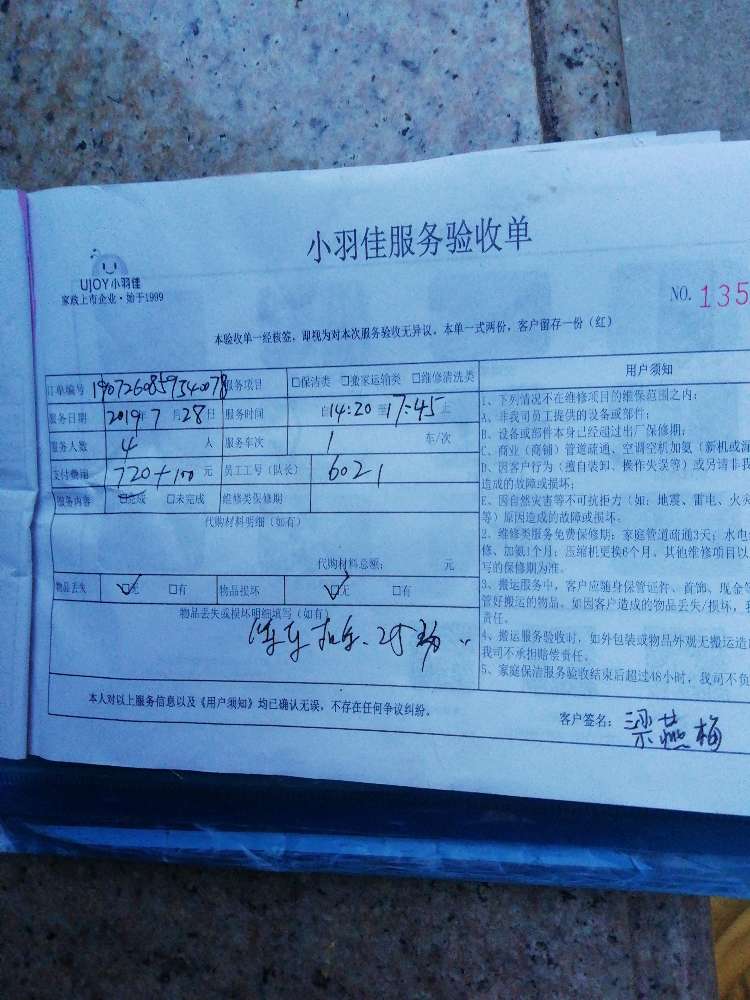 小羽佳服务验收单
UJOY小羽佳
家政上市企业·始于1999
NO. 135
本验收单一经核签，却视为对本次服务验收无异议。本单一式两份，客户留存一份（红）
订单编号 服务项目 □保洁类 □搬家运输类 □维修清洗类
服务日期 2019年7月28日 服务时间 自14:20至17:45止
服务人数 4 人 服务车次 1 车/次
支付费用 720+100 元 员工工号（队长） 6021
服务内容 □完成 □未完成 维修类保修期
代购材料明细（如有）
代购材料总额： 元
物品丢失 ☑无 □有 物品损坏 ☑无 □有
物品丢失或损坏明细填写（如有）
本人对以上服务信息以及《用户须知》均已确认无误，不存在任何争议纠纷。
客户签名：梁燕梅
用户须知
1、下列情况不在维修项目的维保范围之内：
A、非我司员工提供的设备或部件；
B、设备或部件本身已经超过出厂保修期；
C、商业（商铺）管道疏通、空调空机加氨（新机或
D、因客户行为（擅自装卸、操作失误等）或另请非我
造成的故障或损坏；
E、因自然灾害等不可抗拒力（如：地震、雷电、火
等）原因造成的故障或损坏。
2、维修类服务免费保修期：家庭管道疏通3天；水电
修、加氨1个月；压缩机更换6个月。其他维修项目以
写的保修期为准。
3、搬运服务中，客户应随身保管证件、首饰、现金
管好搬运的物品。如因客户造成的物品丢失/损坏，
责任。
4、搬运服务验收时，如外包装或物品外观无搬运造
我司不承担赔偿责任。
5、家庭保洁服务验收结束后超过48小时，我司不负